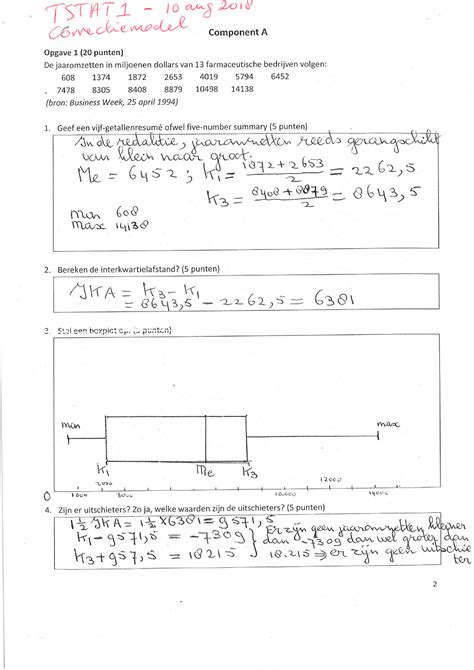 TSTAT1 - 10 aug 2018
Correctiemodel
Component A
Opgave 1 (20 punten)
De jaaromzetten in miljoenen dollars van 13 farmaceutische bedrijven volgen:
608 1374 1872 2653 4019 5794 6452
7478 8305 8408 8879 10498 14138
(bron: Business Week, 25 april 1994)
1. Geef een vijf-getallenresumé ofwel five-number summary (5 punten)
In de redalitie, jaaromzetten reeds gerangschikt
van klein naar groot.
Me = 6452 ; K1 = 1872 + 2653 / 2 = 2262,5
K3 = 8408 + 8879 / 2 = 8643,5
min 608
max 14138
2. Bereken de interkwartielafstand? (5 punten)
IKA = K3 - K1
= 8643,5 - 2262,5 = 6381
3. Stel een boxplot op. (5 punten)
min max
K1 Me K3
2000 12000
0 1000 3000 10.000 14000
4. Zijn er uitschieters? Zo ja, welke waarden zijn de uitschieters? (5 punten)
1½ IKA = 1½ × 6381 = 9571,5
K1 - 9571,5 = -7309 } Er zijn geen jaaromzetten kleiner
dan -7309 dan wel groter dan
K3 + 957,5 = 18215 18.215 ⇒ er zijn geen uitschie
ter
2